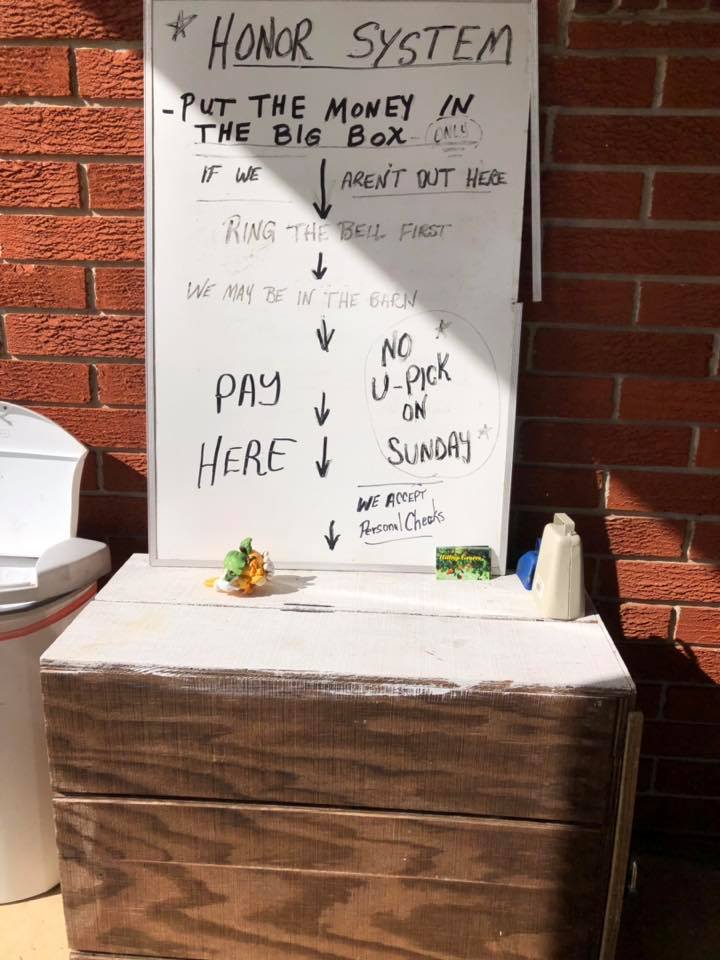 * HONOR SYSTEM
- PUT THE MONEY IN
THE BIG BOX - ONLY
IF WE AREN'T OUT HERE
RING THE BELL FIRST
WE MAY BE IN THE BARN
PAY
HERE
NO *
U-PICK
ON
SUNDAY *
WE ACCEPT
Personal Checks